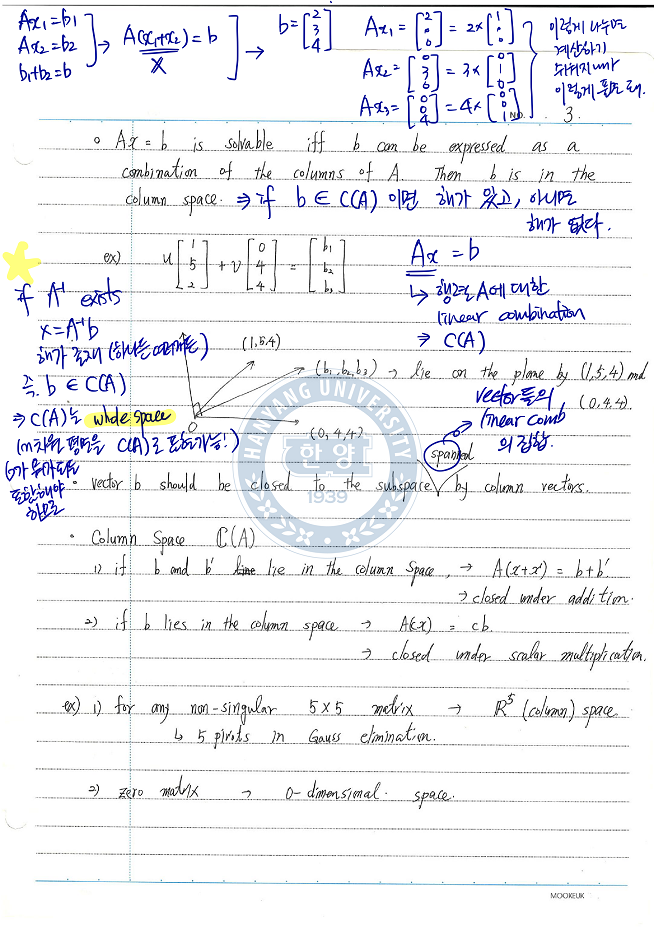 Ax₁=b₁
Ax₂=b₂
b₁+b₂=b
→ A(x₁+x₂)=b
x
→ b=[2 3 4]
Ax₁=[2 0 0]=2×[1 0 0]
Ax₂=[0 3 0]=3×[0 1 0]
Ax₃=[0 0 4]=4×[0 0 1]
이렇게 나누면
계산하기
쉬워지니까
이렇게 풀도 돼.
NO. 3.
Ax=b is solvable iff b can be expressed as a
combination of the columns of A. Then b is in the
column space. ⇒ if b ∈ C(A) 이면 해가 있고, 아니면
해가 없다.
ex) u[1 5 2] + v[0 4 4] = [b₁ b₂ b₃]
Ax = b
↳ 행렬 A에 대한
linear combination
⇒ C(A)
if A⁻¹ exists
x=A⁻¹b
해가 존재
즉. b ∈ C(A)
⇒ C(A)는 whole space
(m차원 평면을 C(A)로 표현가능!)
표현해야
하므로
(1,5,4)
(b₁,b₂,b₃) → lie on the plane by (1,5,4) and
(0,4,4).
(0,4,4)
0
vector들의
linear comb
의 집합.
spanned
HANYANG UNIVERSITY
한양
1939
• vector b should be closed to the subspace by column vectors.
• Column Space C(A)
1) if b and b' lie in the column space, → A(x+x') = b+b'.
→ closed under addition.
2) if b lies in the column space → A(cx) = cb.
→ closed under scalar multiplication.
ex) 1) for any non-singular 5×5 matrix → R⁵ (column) space
↳ 5 pivots in Gauss elimination.
2) zero matrix → 0-dimensional. space.
MOOKEUK